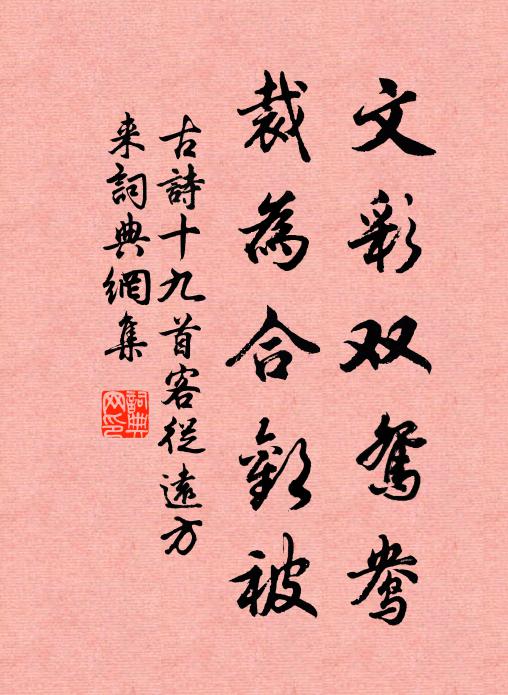 文彩双鸳鸯
裁為合歡被
古詩十九首客從遠方
来詞典網集
詞典
网印